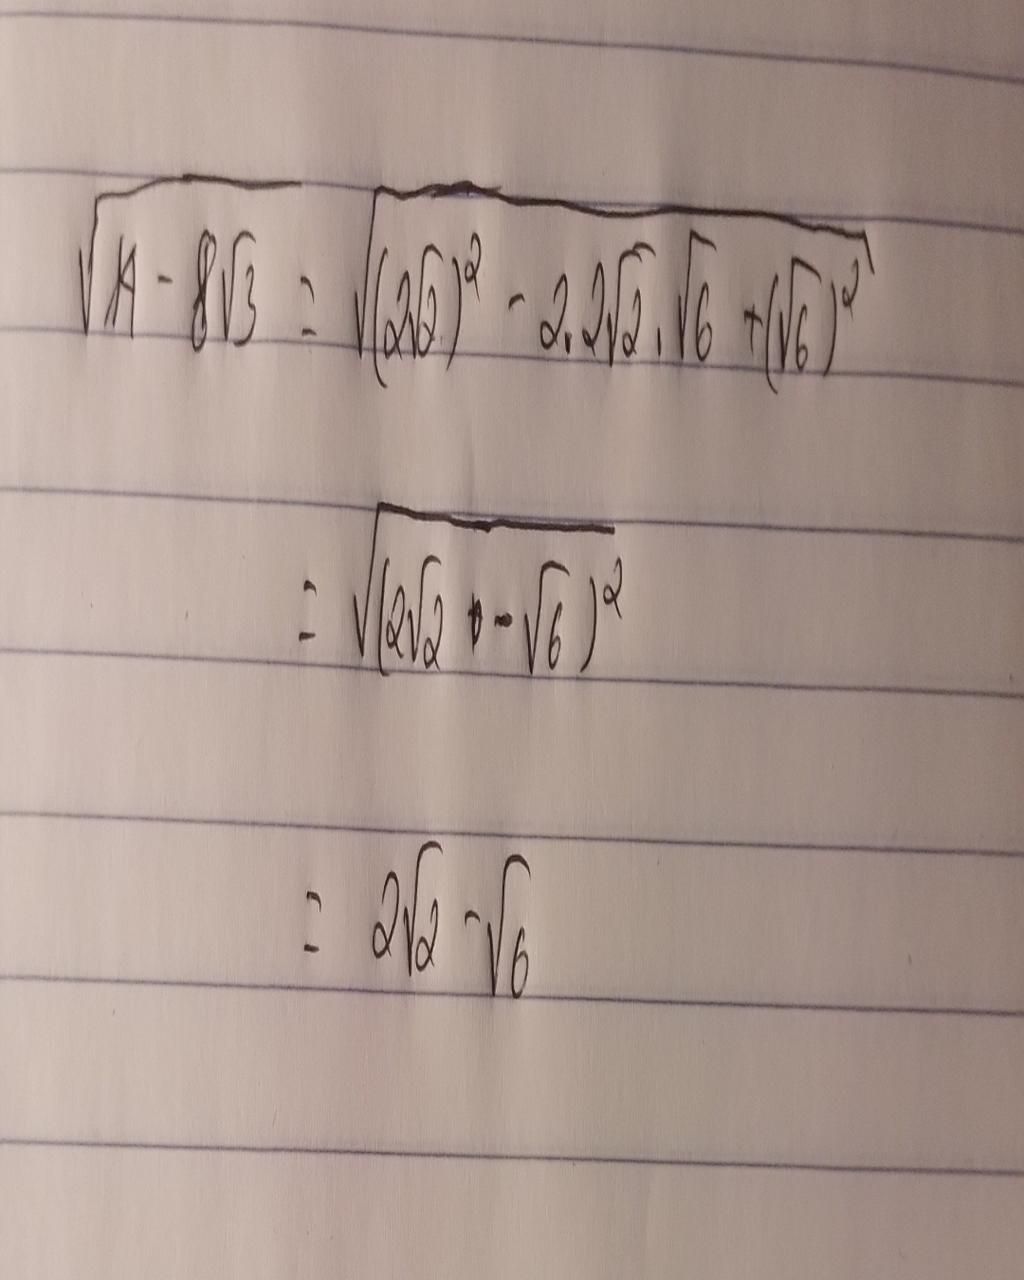 √(14 - 8√3) = √((2√2)² - 2.2√2.√6 + (√6)²)
= √((2√2 - √6)²)
= 2√2 - √6